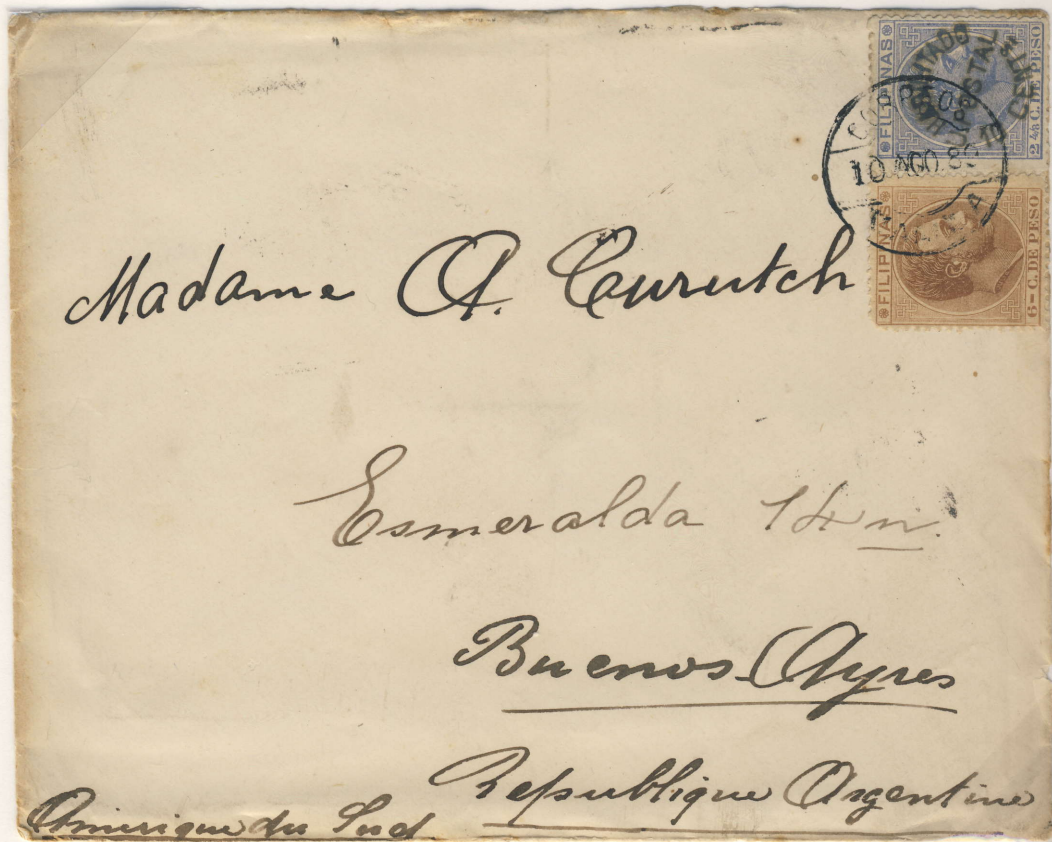 FILIPINAS
2 4/8 C. DE PESO
HABILITADO
U. POSTAL
CORREOS
10 AGO. 8
MANILA
FILIPINAS
6 - C. DE PESO
Madame A. Curutch
Esmeralda 14 n.
Buenos-Ayres
Republique Argentine
Amerique du Sud